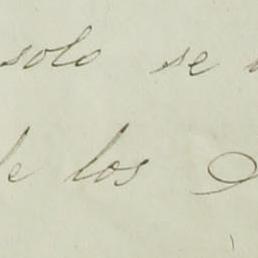 solo se
de los